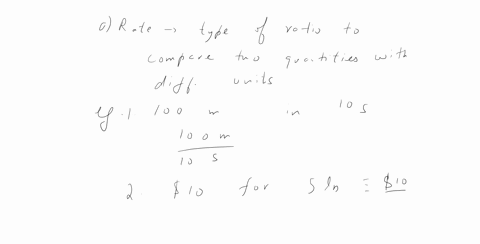 a) Rate → type of ratio to
compare two quantities with
diff. units
eg. 1 100 m in 10 s
100 m
10 s
2 $10 for 5 ≡ $10